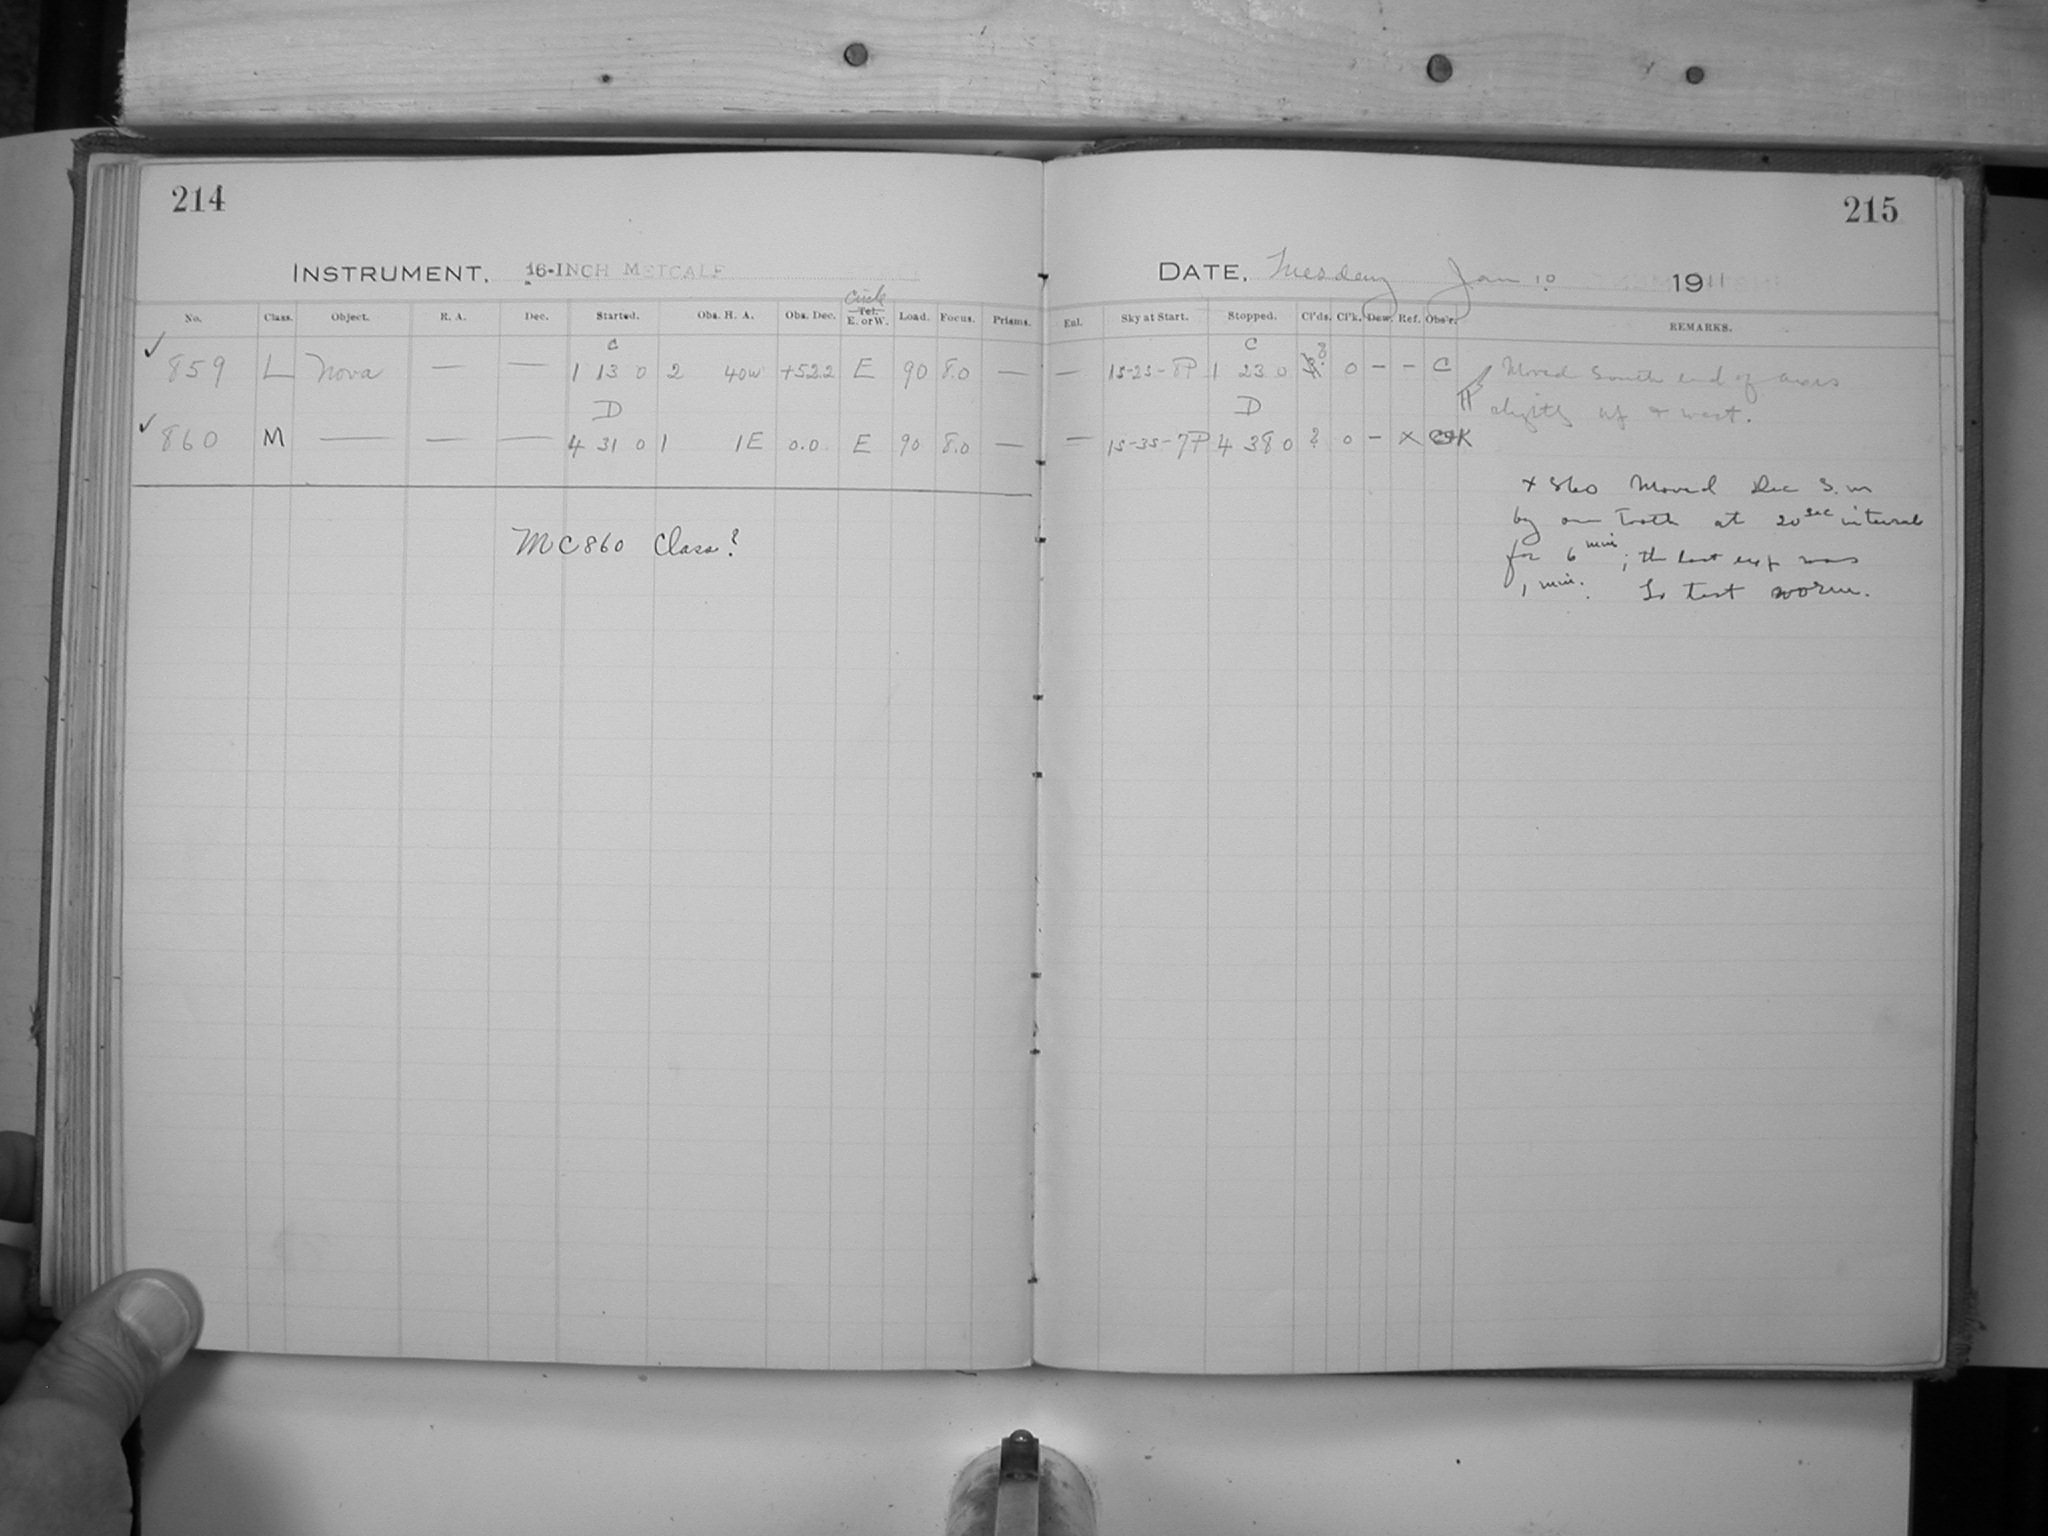 214
215
INSTRUMENT. 16-INCH METCALF
DATE. Tuesday Jan 10 1911
Circle
No. Class. Object. R. A. Dec. Started. Obs. H. A. Obs. Dec. Tel. E. or W. Load. Focus. Prisms. Enl. Sky at Start. Stopped. Cl'ds. Cl'k. Dew. Ref. Obs'r. REMARKS.
C C
✓ 859 L Nova — — 1 13 0 2 40W +52.2 E 90 8.0 — — 15-25-8P 1 23 0 ? 0 - - C Moved South end of axis
D D slightly up & west.
✓ 860 M — — — 4 31 0 1 1E 0.0 E 90 8.0 — — 15-35-7P 4 38 0 ? 0 - X K
x 860 Moved Dec S.
MC860 Class? by one Tooth at 20 sec intervals
for 6 min; the last exp was
1 min. To test worm.